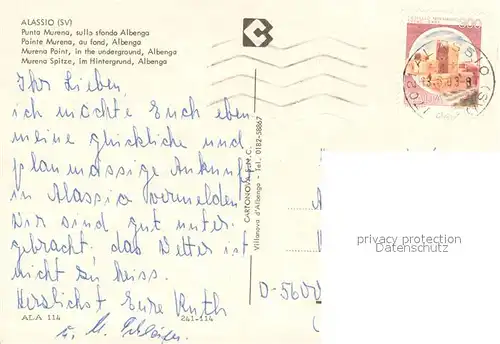 ALASSIO (SV)
Punta Murena, sullo sfondo Albenga
Pointe Murena, au fond, Albenga
Murena Point, in the underground, Albenga
Murena Spitze, im Hintergrund, Albenga
300
Ihr Lieben,
ich möchte Euch eben
meine glückliche und
planmässige Ankunft
in Alassio vermelden
Wir sind gut unter-
gebracht, das Wetter ist
nicht zu heiss.
Herzlichst Eure Ruth
u. M.
ALA 114
241-114
CARTONOVA S.N.C.
Villanova d'Albenga - Tel. 0182-58867
D-5600
privacy protection
Datenschutz